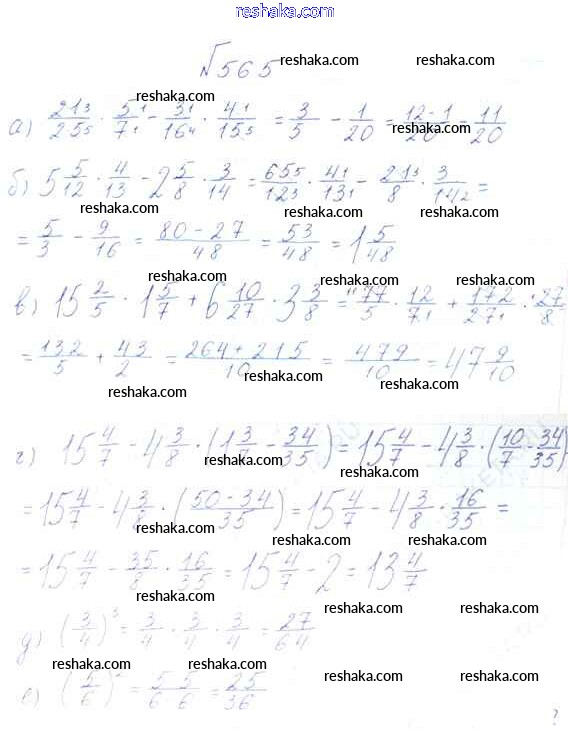 reshaka.com
№565 reshaka.com reshaka.com
reshaka.com
а) 21/25 · 5/7 - 3/16 · 4/15 = 3/5 - 1/20 = 12-1/20 = 11/20
reshaka.com reshaka.com
б) 5 5/12 · 4/13 - 2 5/8 · 3/14 = 65/12 · 4/13 - 21/8 · 3/14 =
reshaka.com reshaka.com
= 5/3 - 9/16 = 80-27/48 = 53/48 = 1 5/48
reshaka.com reshaka.com
в) 15 2/5 · 1 5/7 + 6 10/27 · 3 3/8 = 77/5 · 12/7 + 172/27 · 27/8
reshaka.com
= 132/5 + 43/2 = 264+215/10 = 479/10 = 47 9/10
reshaka.com reshaka.com
reshaka.com
г) 15 4/7 - 4 3/8 · (1 3/7 - 34/35) = 15 4/7 - 4 3/8 · (10/7 - 34/35)
reshaka.com reshaka.com
= 15 4/7 - 4 3/8 · (50-34/35) = 15 4/7 - 4 3/8 · 16/35 =
reshaka.com reshaka.com
= 15 4/7 - 35/8 · 16/35 = 15 4/7 - 2 = 13 4/7
reshaka.com reshaka.com reshaka.com
д) (3/4)³ = 3/4 · 3/4 · 3/4 = 27/64
reshaka.com reshaka.com
е) (5/6)² = 5/6 · 5/6 = 25/36 reshaka.com reshaka.com
reshaka.com